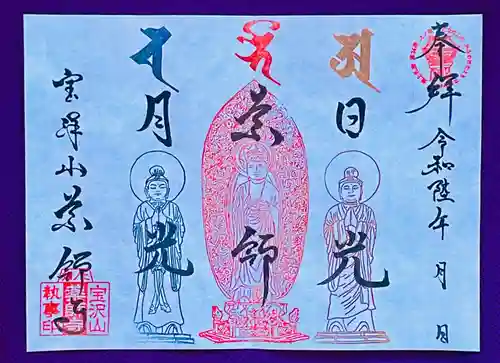 奉拝
令和陸年 月 日
日光
薬師
月光
宝澤山薬師寺
宝沢山
執事印